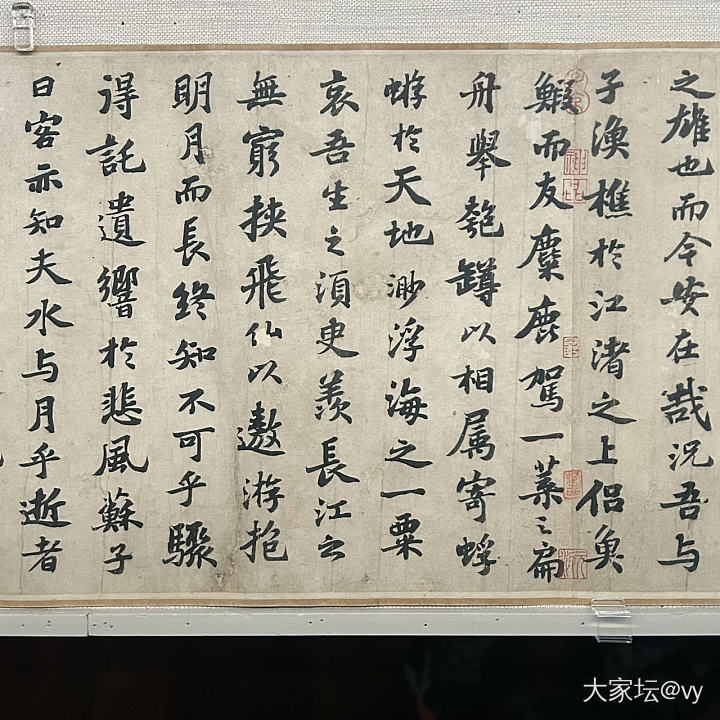 之雄也而今安在哉況吾与
子漁樵於江渚之上侣魚
鰕而友麋鹿駕一葉之扁
舟舉匏罇以相属寄蜉
蝣於天地渺浮海之一粟
哀吾生之須臾羨長江之
無窮挟飛仙以遨游抱
明月而長終知不可乎驟
得託遺響於悲風蘇子
曰客亦知夫水与月乎逝者
大家坛@vy